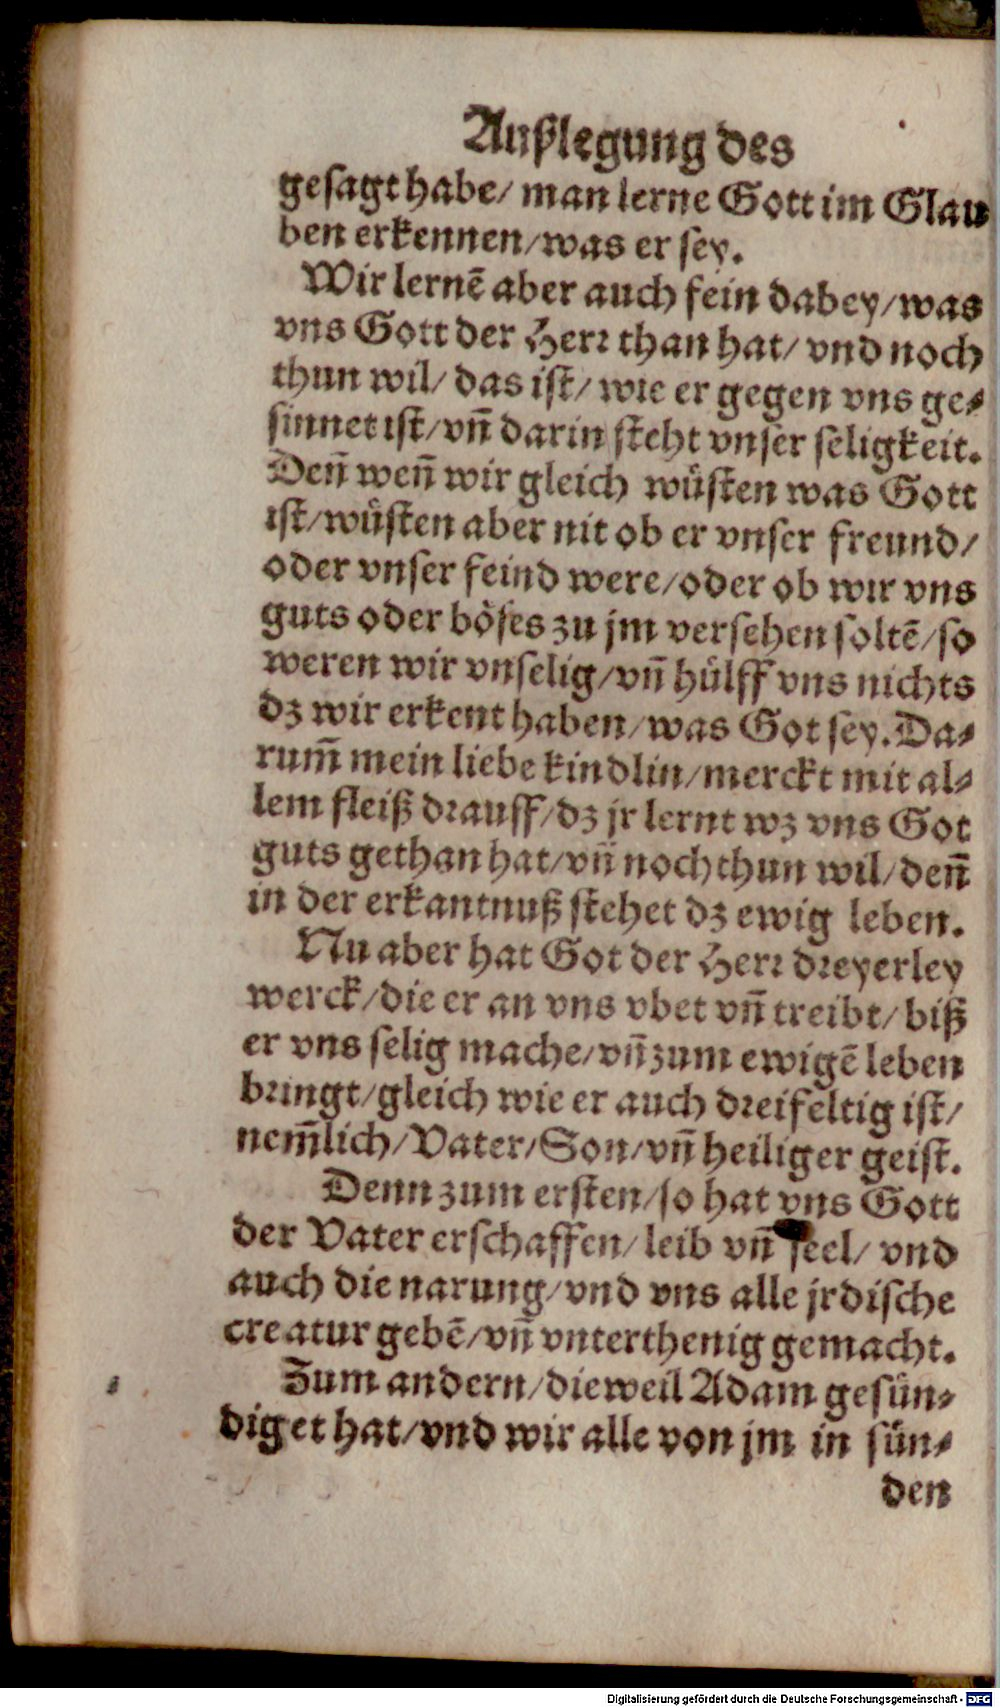 Außlegung des
gesagt habe/ man lerne Gott im Glau
ben erkennen/was er sey.
Wir lernē aber auch fein dabey/was
vns Gott der Herr than hat/ vnd noch
thun wil/ das ist/ wie er gegen vns ge⸗
sinnet ist/vñ darin steht vnser seligkeit.
Deñ weñ wir gleich wüsten was Gott
ist/wüsten aber nit ob er vnser freund/
oder vnser feind were/oder ob wir vns
guts oder böses zu jm versehen soltē/so
weren wir vnselig/vñ hülff vns nichts
dz wir erkent haben/was Got sey. Da⸗
rum̃ mein liebe kindlin/merckt mit al⸗
lem fleiß drauff/dz jr lernt wz vns Got
guts gethan hat/vñ noch thun wil/deñ
in der erkantnuß stehet dz ewig leben.
Nu aber hat Got der Herr dreyerley
werck/die er an vns vbet vñ treibt/ biß
er vns selig mache/vñ zum ewigē leben
bringt/gleich wie er auch dreifeltig ist/
nem̃lich/Vater/Son/vñ heiliger geist.
Denn zum ersten/so hat vns Gott
der Vater erschaffen/ leib vñ seel/ vnd
auch die narung/vnd vns alle jrdische
creatur gebē/vñ vnterthenig gemacht.
Zum andern/dieweil Adam gesün⸗
diget hat/vnd wir alle von jm in sün⸗
den
Digitalisierung gefördert durch die Deutsche Forschungsgemeinschaft - DFG